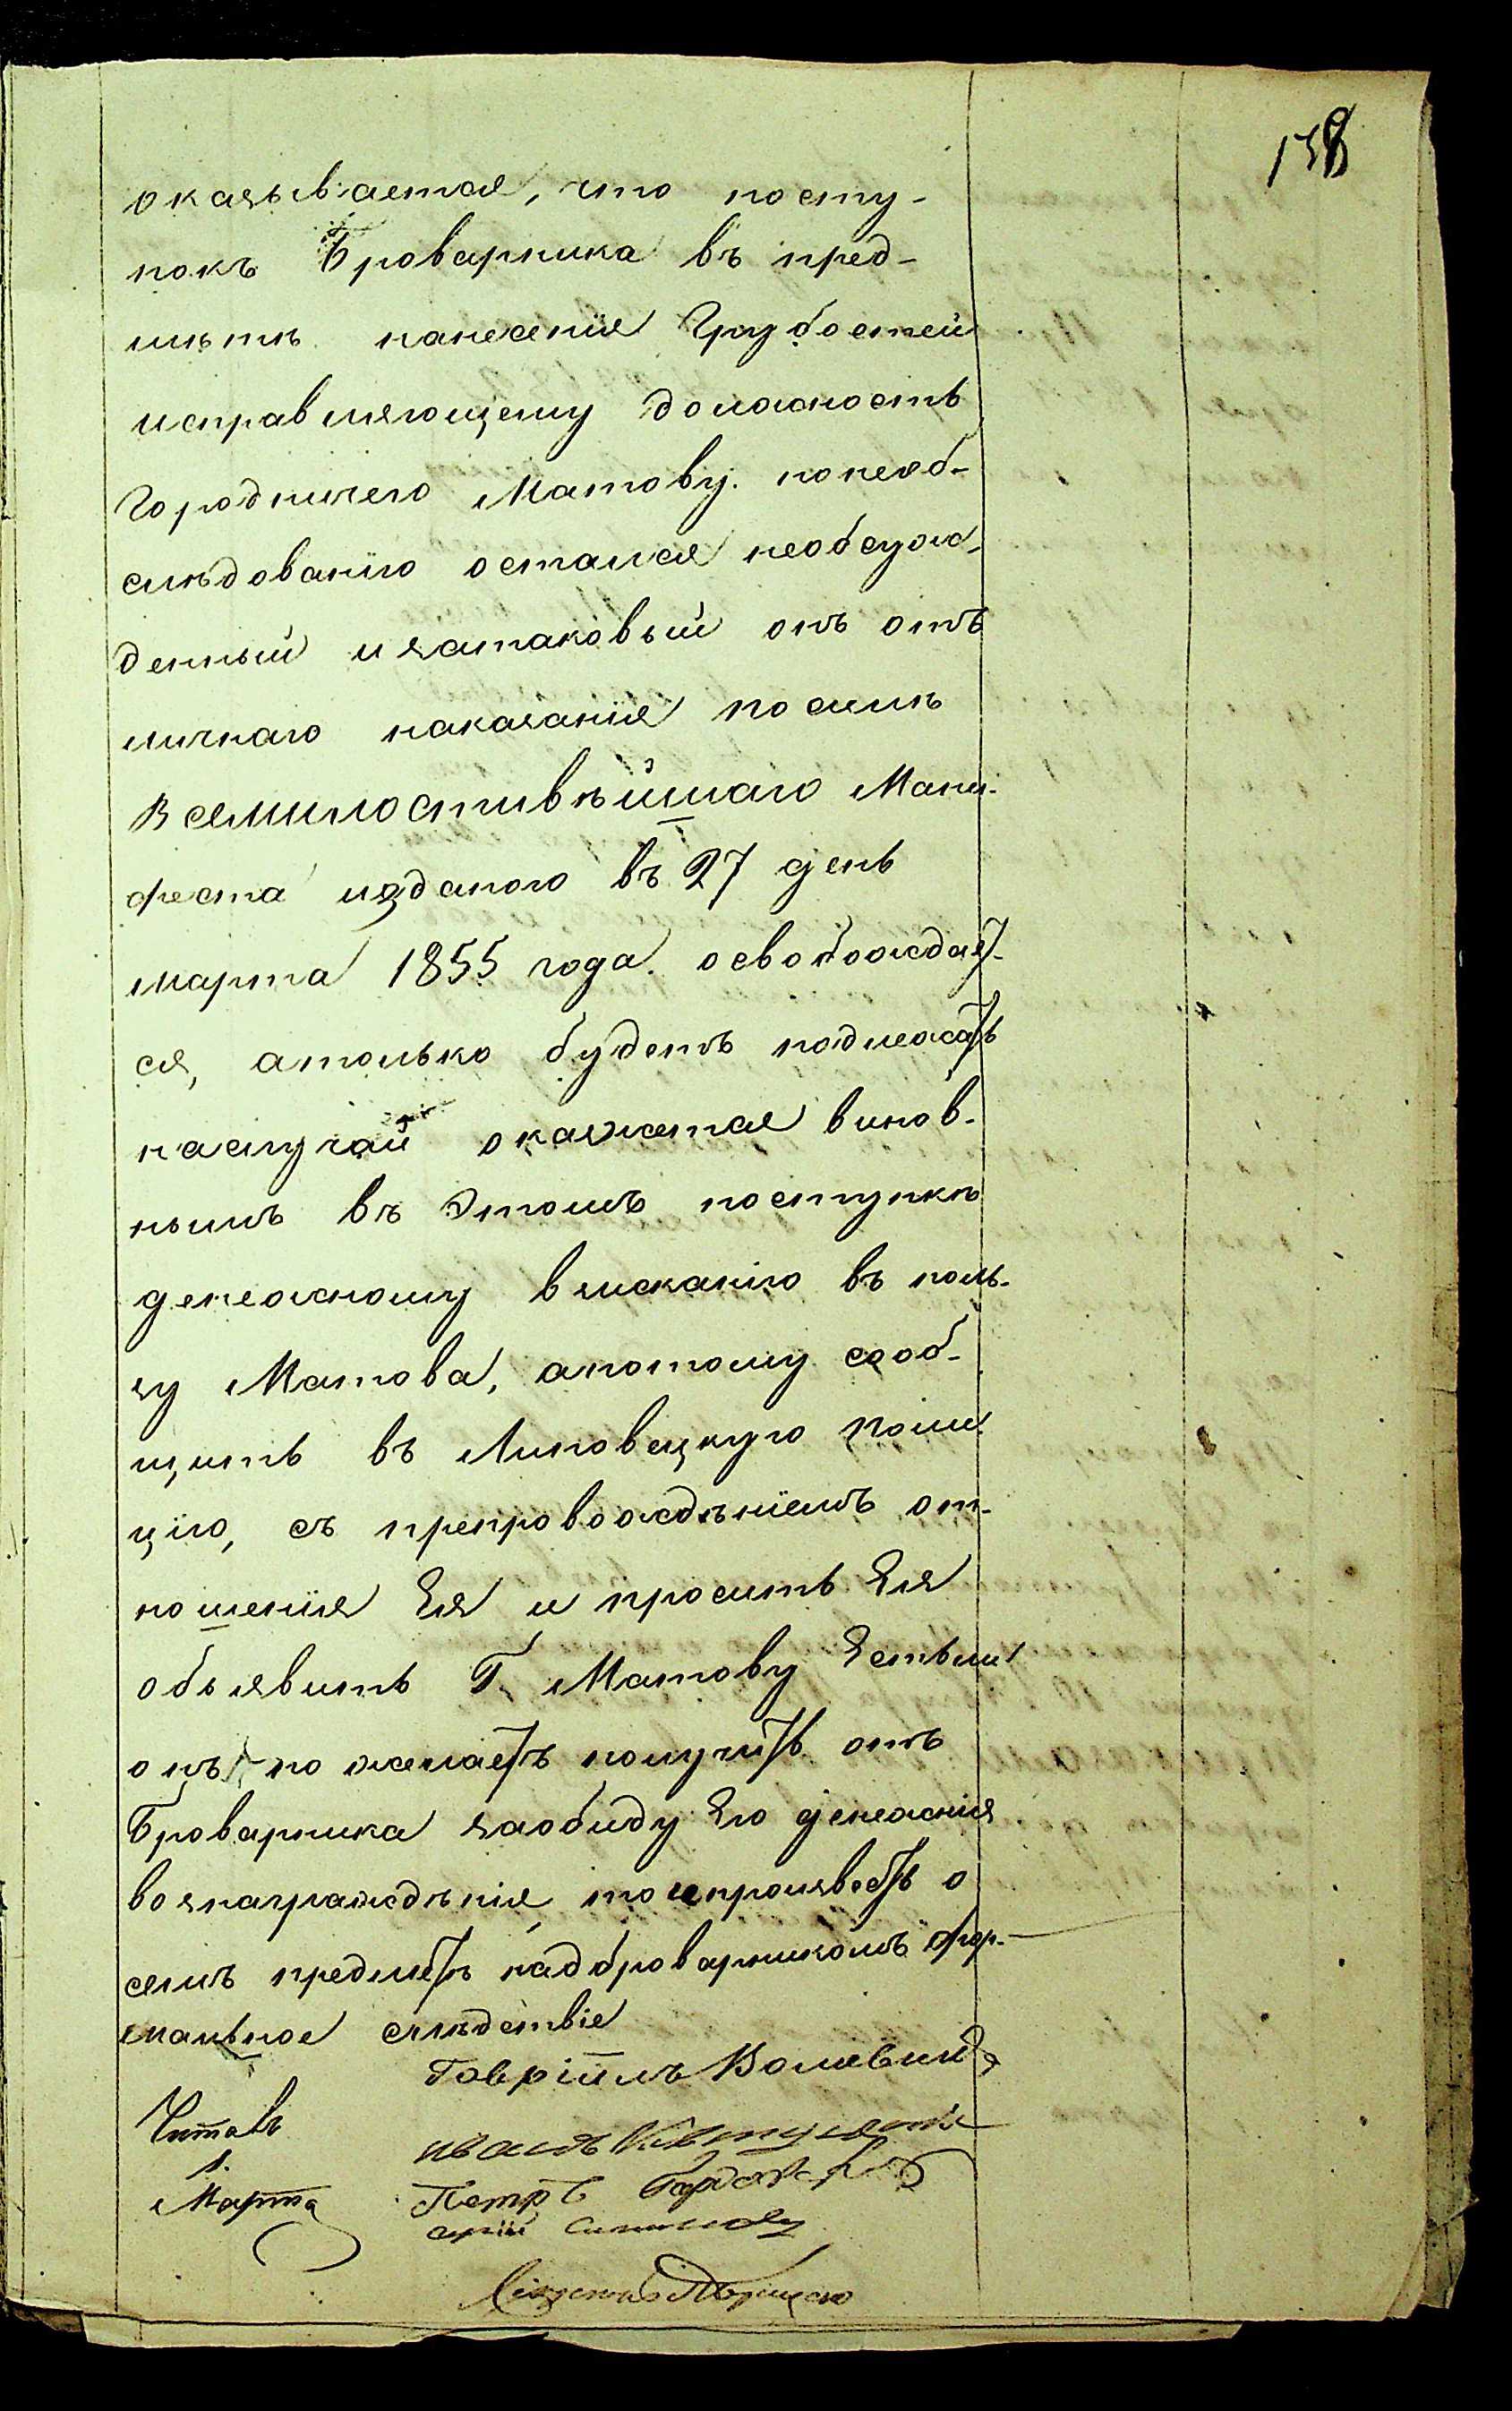 138
оказывается, что посту-
покъ Броварника въ пред-
мѣтѣ нанесенія Грубостей
исправляющему должность
Городничего Матову. понеоб-
слѣдованію остался необсуж-
денный изатаковый онъ отъ
личнаго наказанія посилѣ
Всемилостивѣйшаго Мани-
феста изданого въ 27 день
марта 1855 года. освобождает-
ся, атолько будетъ подлежать
наслучай окажется винов-
нымъ въ Этомъ поступкѣ
денежному взысканію въ поль-
зу Матова, апотому сооб-
щить въ Липовецкую Поли-
цію, съ препровождѣніемъ от-
ношенія Ея и просить Ея
объявить Г. Матову Естьли
онъ пожелаетъ получить отъ
Броварника заобиду Его денежнія
вознагражденія, то ипроизвесть о
семъ предметѣ надброварникомъ фор-
мальное слѣдствіе
Гавріилъ
Читавъ
1.
Марта
иванъ
Петръ